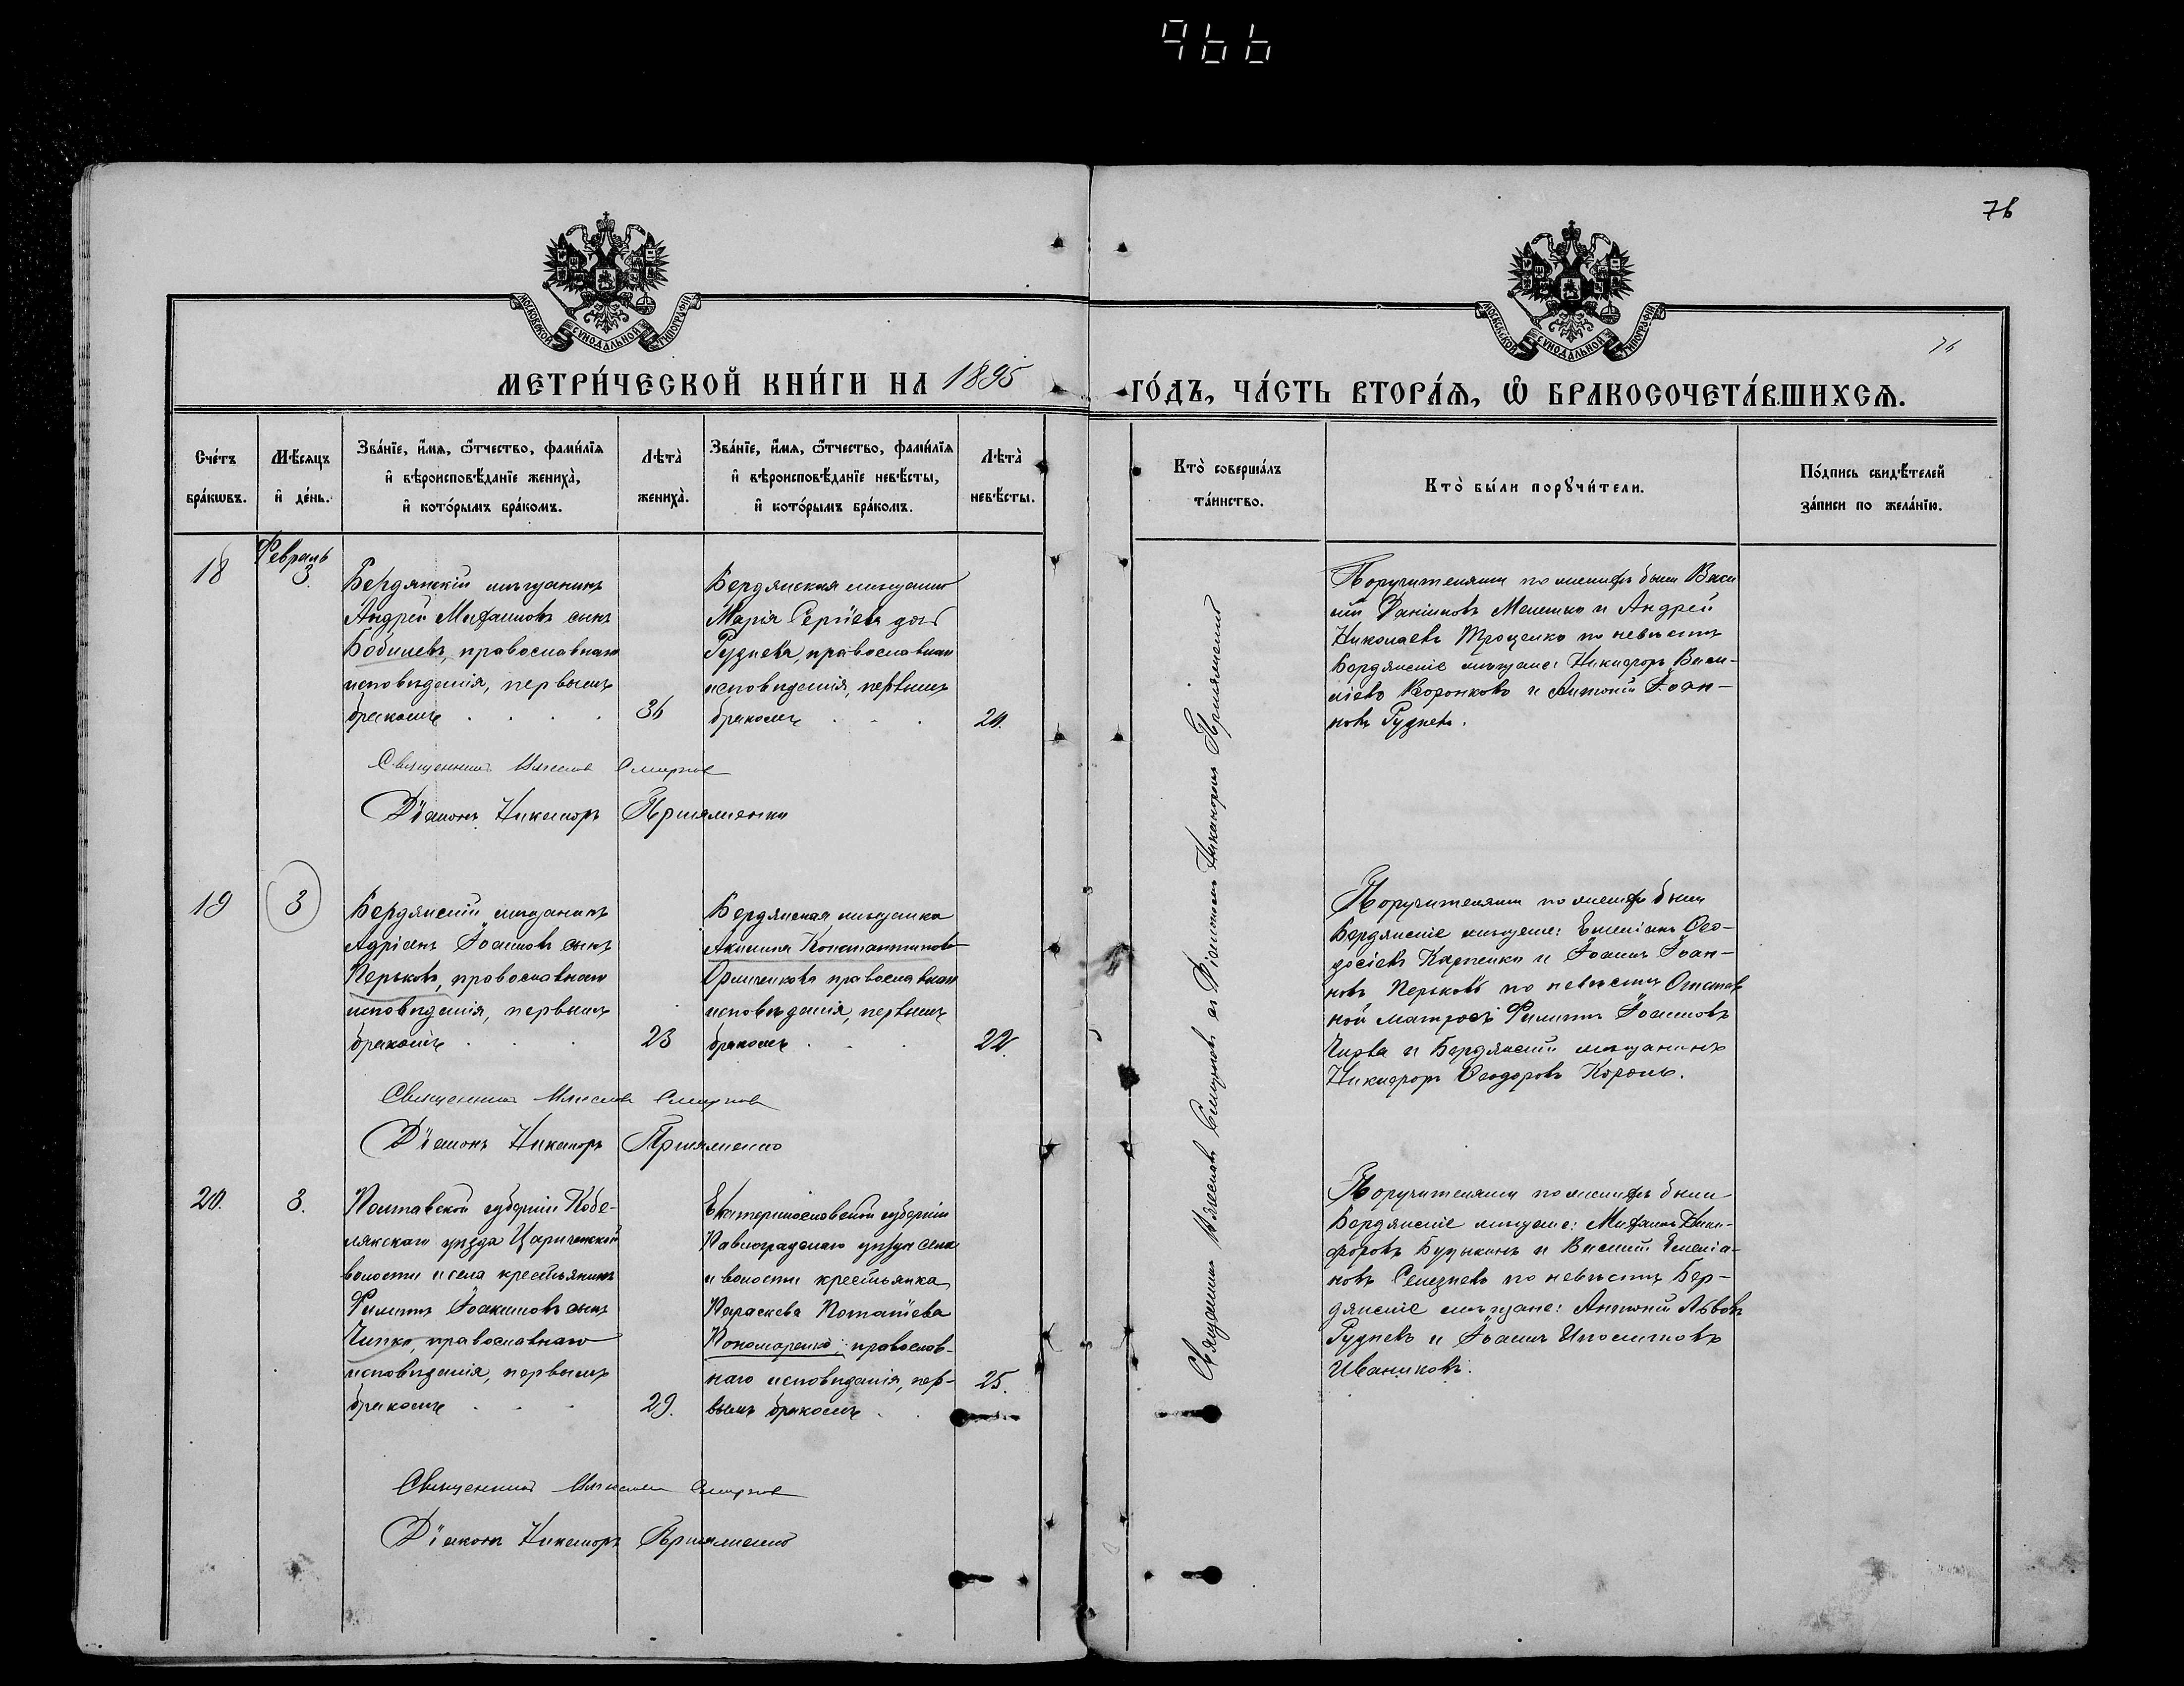 966
76
МОСКОВСКОЙ СУНОДАЛЬНОЙ ТИПОГРАФІИ
МОСКОВСКОЙ СУНОДАЛЬНОЙ ТИПОГРАФІИ
76
МЕТРИ́ЧЕСКОЙ КНИ́ГИ НА 1895
ГО́ДЪ, ЧА́СТЬ ВТОРА́Ѧ, Ѽ БРАКОСОЧЕТА́ВШИХСѦ.
Сче́тъ бра́кѡвъ.
Мѣ́сяцъ и҆ де́нь.
Зва́нїе, и҆́мя, ѻ҆́тчество, фами́лїя
и҆ вѣроисповѣ́данїе жениха̀,
и҆ кото́рымъ бра́комъ.
Лѣта̀ жениха̀.
Зва́нїе, и҆́мя, ѻ҆́тчество, фами́лїя
и҆ вѣроисповѣ́данїе невѣ́сты,
и҆ кото́рымъ бра́комъ.
Лѣта̀ невѣ́сты.
Кто̀ соверша́лъ
та́инство.
Кто̀ бы́ли порꙋчи́тели.
По́дпись свидѣ́телей
за́писи по жела́нїю.
18
Февраль
3.
Бердянскій мѣщанинъ
Андрей Михаиловъ сынъ
Бобылевъ, православнаго
исповѣданія, первымъ
бракомъ
36
Бердянская мѣщанка
Марія Сергіева дочь
Руднева, православнаго
исповѣданія, первымъ
бракомъ
20.
Поручителями по женихѣ были Васи
лій Даніиловъ Мелешко и Андрей
Николаевъ Троценко по невѣстѣ
Бердянскіе мѣщане: Никифоръ Васи-
ліевъ Воронковъ и Антоній Іоан-
новъ Рудневъ.
Священникъ Смирновъ
Діаконъ Никаноръ
19
3
Бердянскій мѣщанинъ
Адріанъ Іоанновъ сынъ
Перьковъ, православнаго
исповѣданія, первымъ
бракомъ
23
Бердянская мѣщанка
Акилина Константинова
православнаго
исповѣданія, первымъ
бракомъ
22.
Поручителями по женихѣ были
Бердянскіе мѣщане: Емеліанъ Ѳео-
досіевъ Карпенко и Іоаннъ Іоан-
новъ Перьковъ по невѣстѣ Отстав
ной матросъ Филиппъ Іоанновъ
и Бердянскій мѣщанинъ
Никифоръ Ѳеодоровъ Король.
Священникъ Смирновъ
Діаконъ Никаноръ
20.
3.
Полтавской губерніи Кобе-
лякскаго уѣзда Царичанской
волости и села крестьянинъ
Филиппъ Іоакимовъ сынъ
Чипко, православнаго
исповѣданія, первымъ
бракомъ
29.
Екатеринославской губерніи
Павлоградскаго уѣзда села
и волости крестьянка
Параскева Потапіева
Пономаренко, православ-
наго исповѣданія, пер-
вымъ бракомъ
25.
Поручителями по женихѣ были
Бердянскіе мѣщане: Михаилъ Ники-
форовъ и Василій Емеліа-
новъ Селезневъ по невѣстѣ Бер-
дянскіе мѣщане: Антоній Львовъ
Рудневъ и Іоаннъ Ипполитовъ
Иваниковъ.
Священникъ Смирновъ
Діаконъ Никаноръ
Священникъ Смирновъ съ Діакономъ Никаноромъ